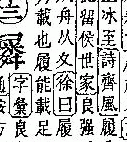 冰至詩齊風履
留侯世家良强
舟从文徐曰履
載也履能載足
字彙良